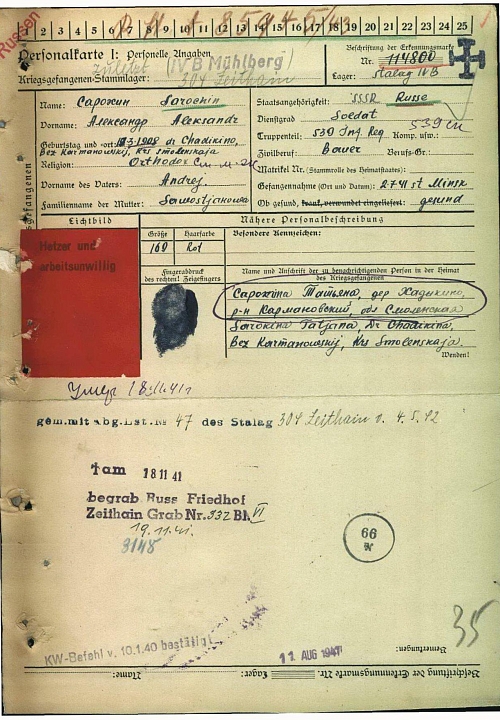 Russen
1 2 3 4 5 6 7 8 9 10 11 12 13 14 15 16 17 18 19 20 21 22 23 24 25
Personalkarte I: Personelle Angaben
Beschriftung der Erkennungsmarke
Nr. 114800
Kriegsgefangenen-Stammlager:
zuletzt (IV B Mühlberg)
304 Zeithain
Lager: Stalag IVB
Name: Сарокин Sarockin
Vorname: Александр Aleksandr
Geburtstag und -ort: 1908 Chadikino,
Bez Karmanowskij, Krs Smolenskaja
Religion: Orthodox
Vorname des Vaters: Andrej
Familienname der Mutter: Sawostjanowa
Staatsangehörigkeit: SSSR Russe
Dienstgrad: Soldat
Truppenteil: 539 Inf. Reg Komp. usw.: 539
Zivilberuf: Bauer Berufs-Gr.:
Matrikel Nr. (Stammrolle des Heimatstaates):
Gefangennahme (Ort und Datum): Minsk
Ob gesund, krank, verwundet eingeliefert: gesund
Lichtbild
Nähere Personalbeschreibung
Hetzer und
arbeitsunwillig
Größe Haarfarbe Besondere Kennzeichen:
169 Rot
Fingerabdruck
des rechten! Zeigefingers
Name und Anschrift der zu benachrichtigenden Person in der Heimat
des Kriegsgefangenen
Сарокина Татьяна, дер Хадикино,
р-н Кармановский, обл Смоленская
Sarokina Tatjana, Dr Chadikino,
Bez Karmanowskij, Krs Smolenskaja.
Wenden!
Умер 18.11.41г
gem.mit abg.Lst.Nr 47 des Stalag 304 Zeithain v. 4.5.42
†am 18 11 41
begrab. Russ Friedhof
Zeithain Grab Nr. 332 Bl. VI
19.11.41.
3148
66
35
KW-Befehl v. 10.1.40 bestätigt
11 AUG 1941
Bemerkungen:
Beschriftung der Erkennungsmarke Nr.
Lager:
Name: